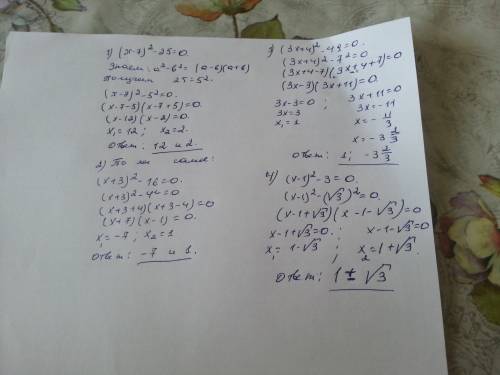 1) (x-7)² - 25=0.
Знаем: a²-b²= (a-b)(a+b)
Получим 25=5².
(x-7)²-5²=0.
(x-7-5)(x-7+5)=0.
(x-12)(x-2)=0.
x₁=12; x₂=2.
Ответ: 12 и 2.
2) То же самое:
(x+3)²-16=0.
(x+3)²-4²=0
(x+3+4)(x+3-4)=0
(x+7)(x-1)=0.
x₁=-7; x₂=1
Ответ: -7 и 1.
3) (3x+4)²-49=0.
(3x+4)²-7²=0
(3x+4-7)(3x+4+7)=0
(3x-3)(3x+11)=0
3x-3=0; 3x+11=0
3x=3 3x=-11
x₁=1 x=-11/3
x=-3 2/3
Ответ: 1; -3 2/3
4) (x-1)²-3=0.
(x-1)²-(√3)²=0.
(x-1+√3)(x-1-√3)=0
x-1+√3=0; x-1-√3=0
x₁=1-√3; x₂=1+√3.
Ответ: 1±√3